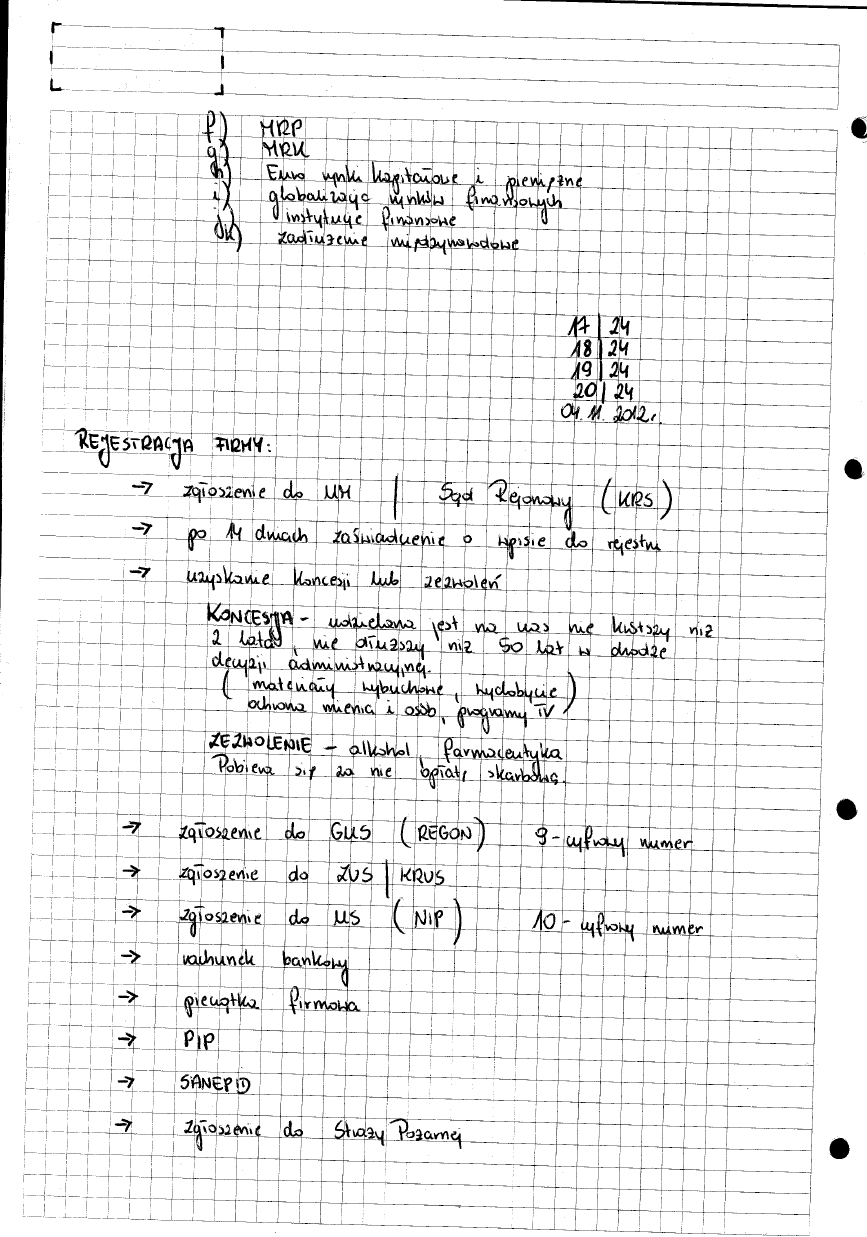 f) MRP
g) MRK
h) Euro rynki kapitałowe i pieniężne
i) globalizacja rynków finansowych
j) instytucje finansowe
k) zadłużenie międzynarodowe
17 | 24
18 | 24
19 | 24
20 | 24
04.11.2012r.
REJESTRACJA FIRMY:
→ zgłoszenie do UM | Sąd Rejonowy (KRS)
→ po 14 dniach zaświadczenie o wpisie do rejestru
→ uzyskanie koncesji lub zezwoleń
KONCESJA – udzielana jest na czas nie krótszy niż
2 lata, nie dłuższy niż 50 lat w drodze
decyzji administracyjnej.
(materiały wybuchowe, wydobycie)
ochrona mienia i osób, programy TV
ZEZWOLENIE – alkohol, farmaceutyka
Pobiera się za nie opłatę skarbową.
→ zgłoszenie do GUS (REGON) 9-cyfrowy numer
→ zgłoszenie do ZUS | KRUS
→ zgłoszenie do US (NIP) 10-cyfrowy numer
→ rachunek bankowy
→ pieczątka firmowa
→ PIP
→ SANEPID
→ zgłoszenie do Straży Pożarnej